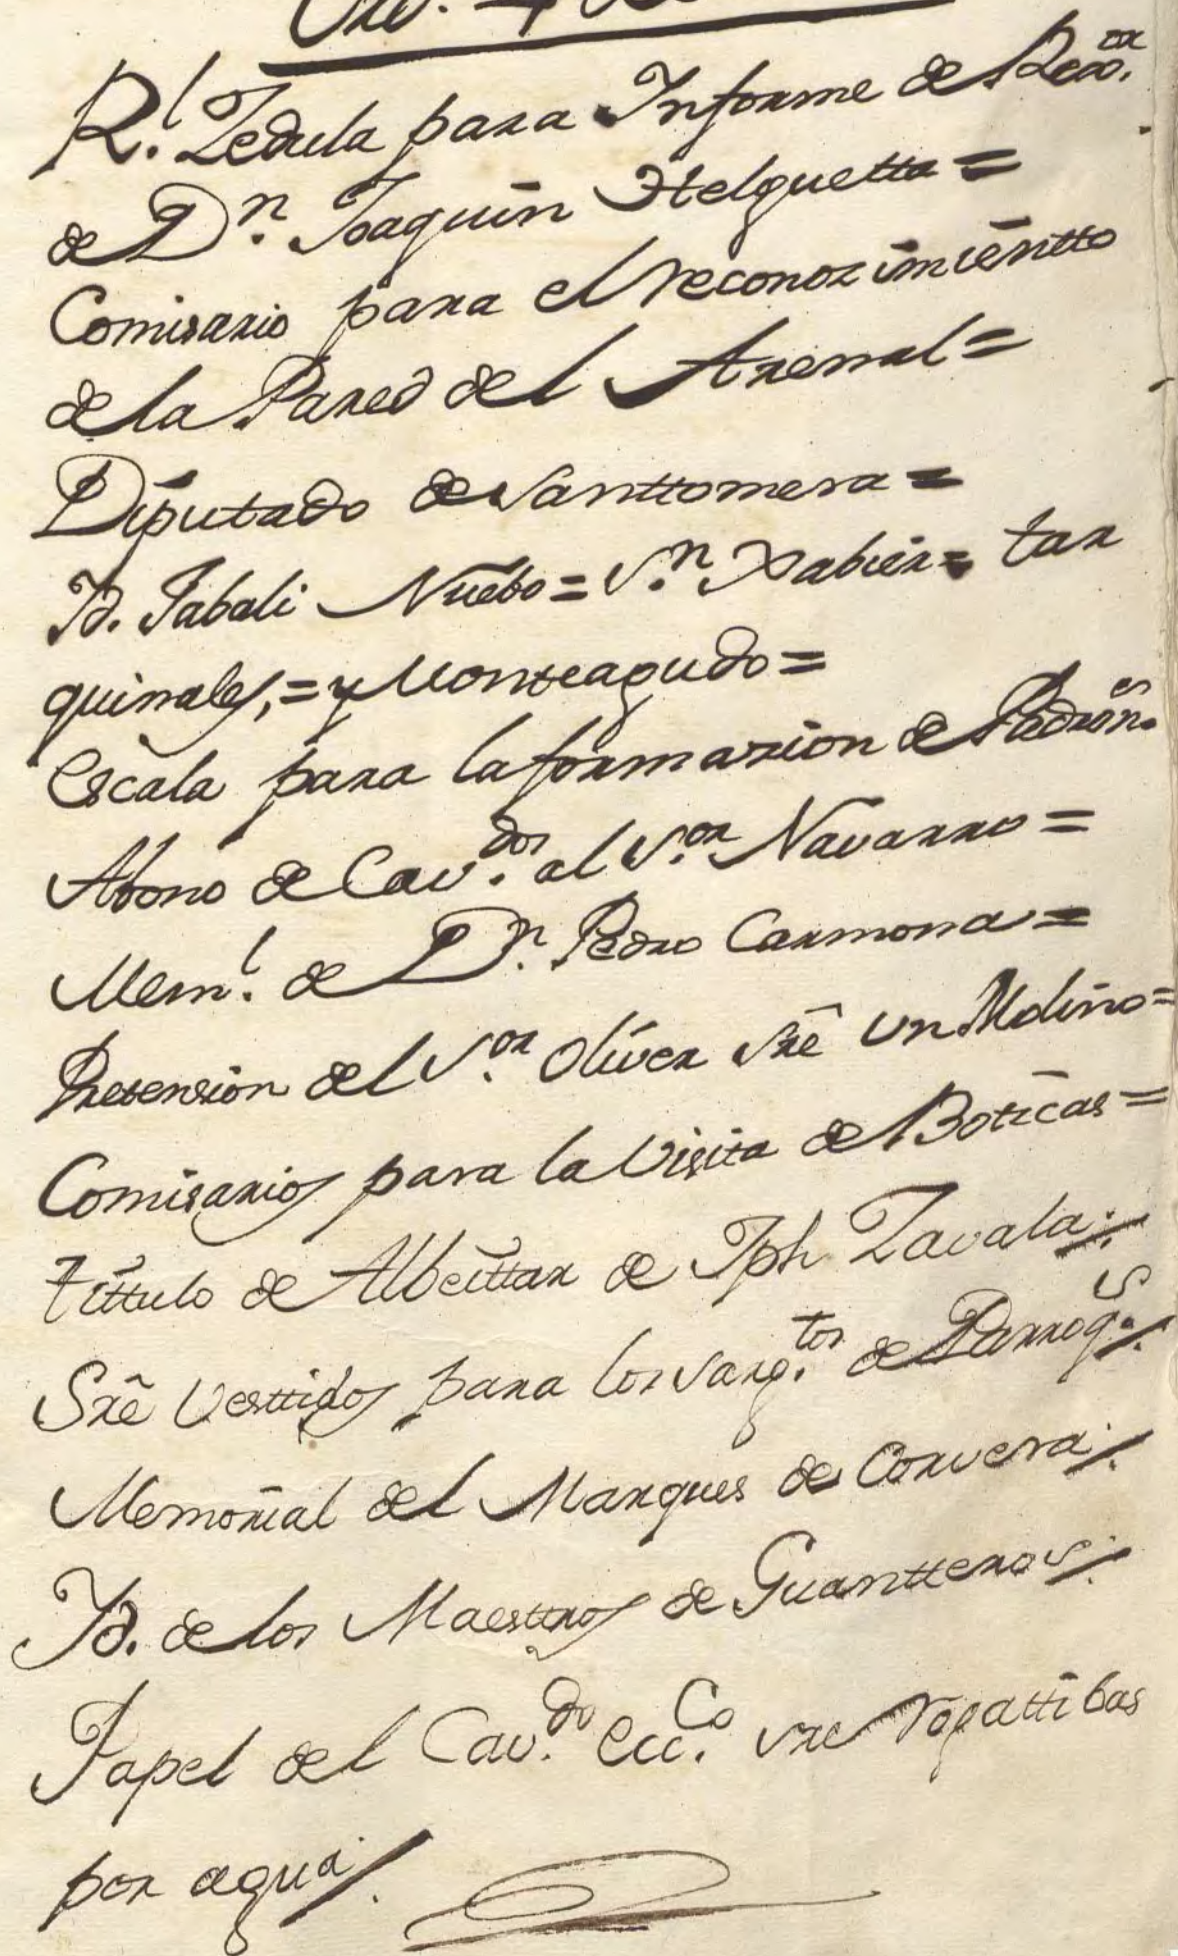 R.l Zedula para Informe de Rexo.or
de Dn. Joaquin Helguetta =
Comisario para el reconozimientto
de la Pared del Arenal =
Diputado de Santtomera =
Yd. Jabali Nuebo = S.n Xabier = tar
quinales, = y Monteagudo =
Escala para la formazion de Padron.es
Abono de Cav.dos al S.or Navarro =
Mem.l de Dn. Pedro Carmona =
Pretension del S.or Oliver sre un Molino =
Comisarios para la Visita de Boticas =
Tittulo de Albeittar de Jph Zavala /.
Sre Vesttidos para los sarg.tos de Parroq.s /.
Memorial del Marques de Corvera /.
Yd. de los Maesttros de Guantteros /.
Papel del Cav.do Ecc.Co sre rogattibas
por agua /.